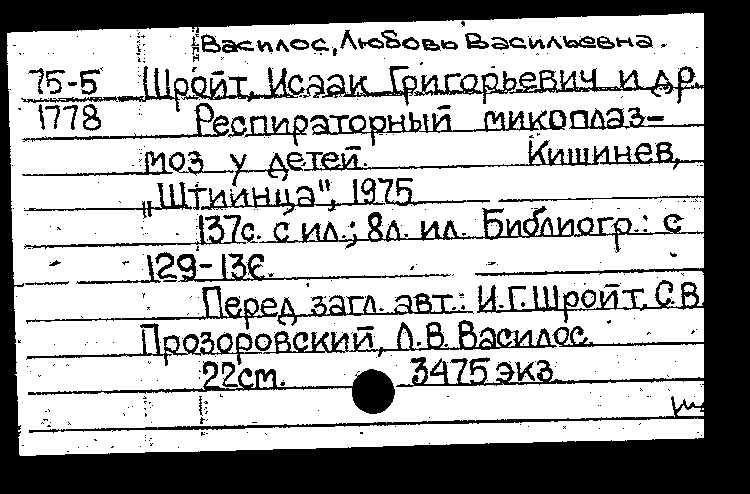 Василос, Любовь Васильевна.
75-5 Шройт, Исаак Григорьевич и др.
1778 Респираторный микоплаз-
моз у детей. Кишинев,
„Штиинца", 1975
137с. с ил.; 8л. ил. Библиогр.: с
129-136.
Перед загл. авт.: И.Г.Шройт, С.В.
Прозоровский, Л.В. Василос.
22см. 3475 экз